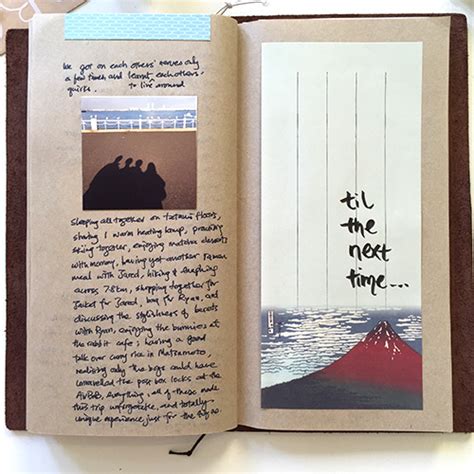 We got on each others' nerves only
a few times and learnt each others'
quirks. to live around
Sleeping all together on tatami floors,
sharing 1 warm heating lamp, practising
skiing together, enjoying matcha desserts
with mommy, having yet another ramen
meal with Jared, hiking & snapping
across 7.8km, shopping together for
jacket for Jared, bag for Ryan, and
discussing the stylishness of berets
with Ryan, enjoying the bunnies at
the rabbit cafe; having a good
talk over curry rice in Matsumoto,
realising only the boys could have
unravelled the post box locks at the
AirBnB, everything, all of these made
this trip unforgettable, and totally
unique experience just for the
til
the
next
time...